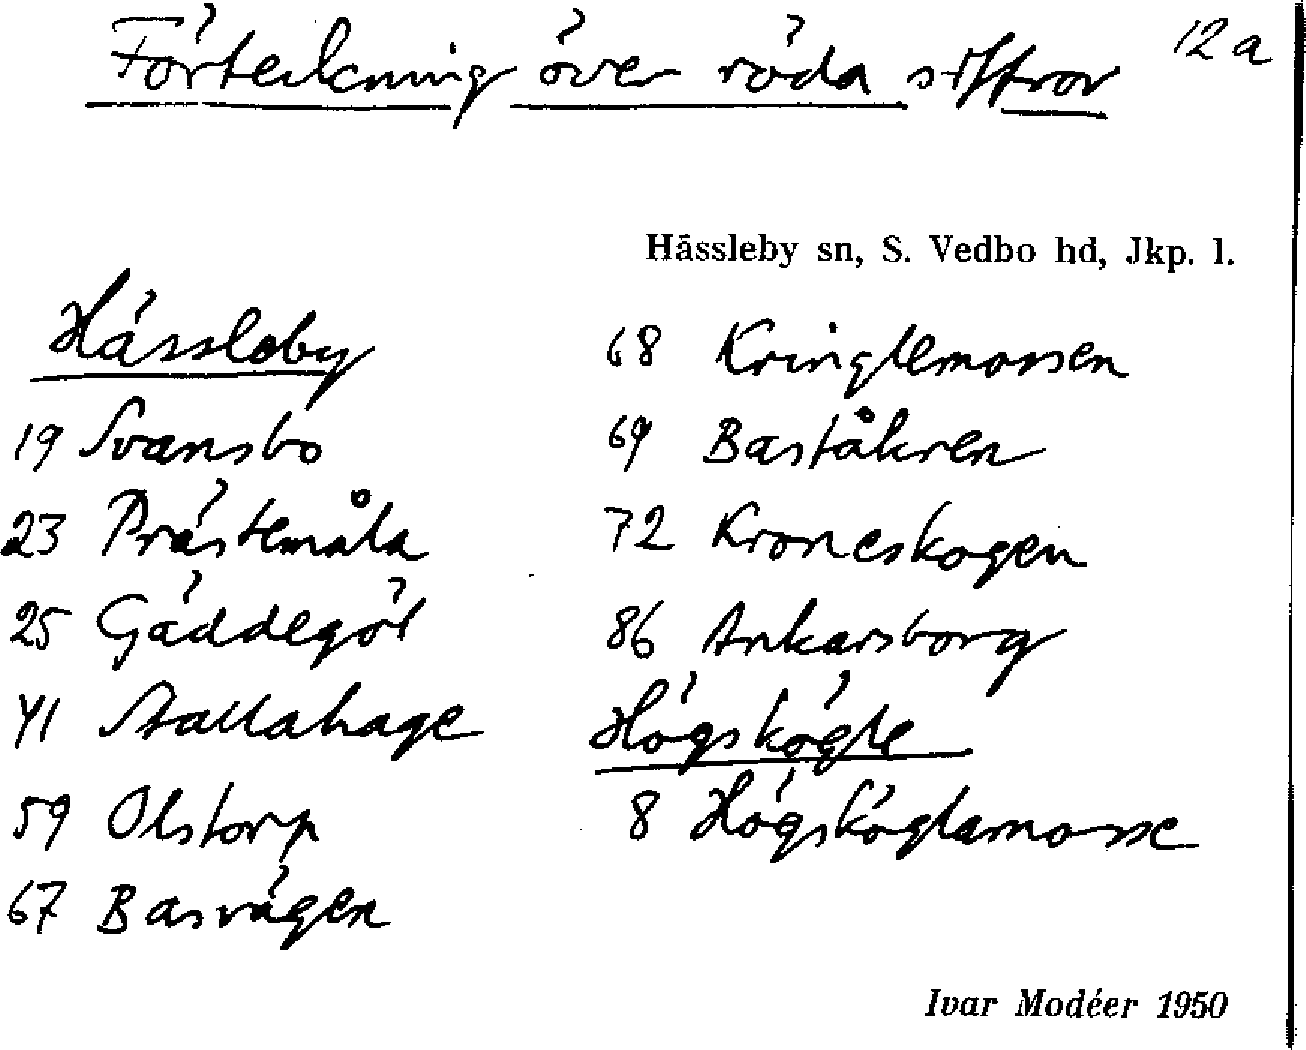 Förteckning över röda siffror
12a
Hässleby sn, S. Vedbo hd, Jkp. l.
Hässleby
19 Svansbo
23 Prästemåla
25 Gäddegöl
41 Stallahage
59 Olstorp
67 Basvägen
68 Kringlemossen
69 Baståkren
72 Kroneskogen
86 Ankarsborg
Högskögle
8 Högsköglamosse
Ivar Modéer 1950